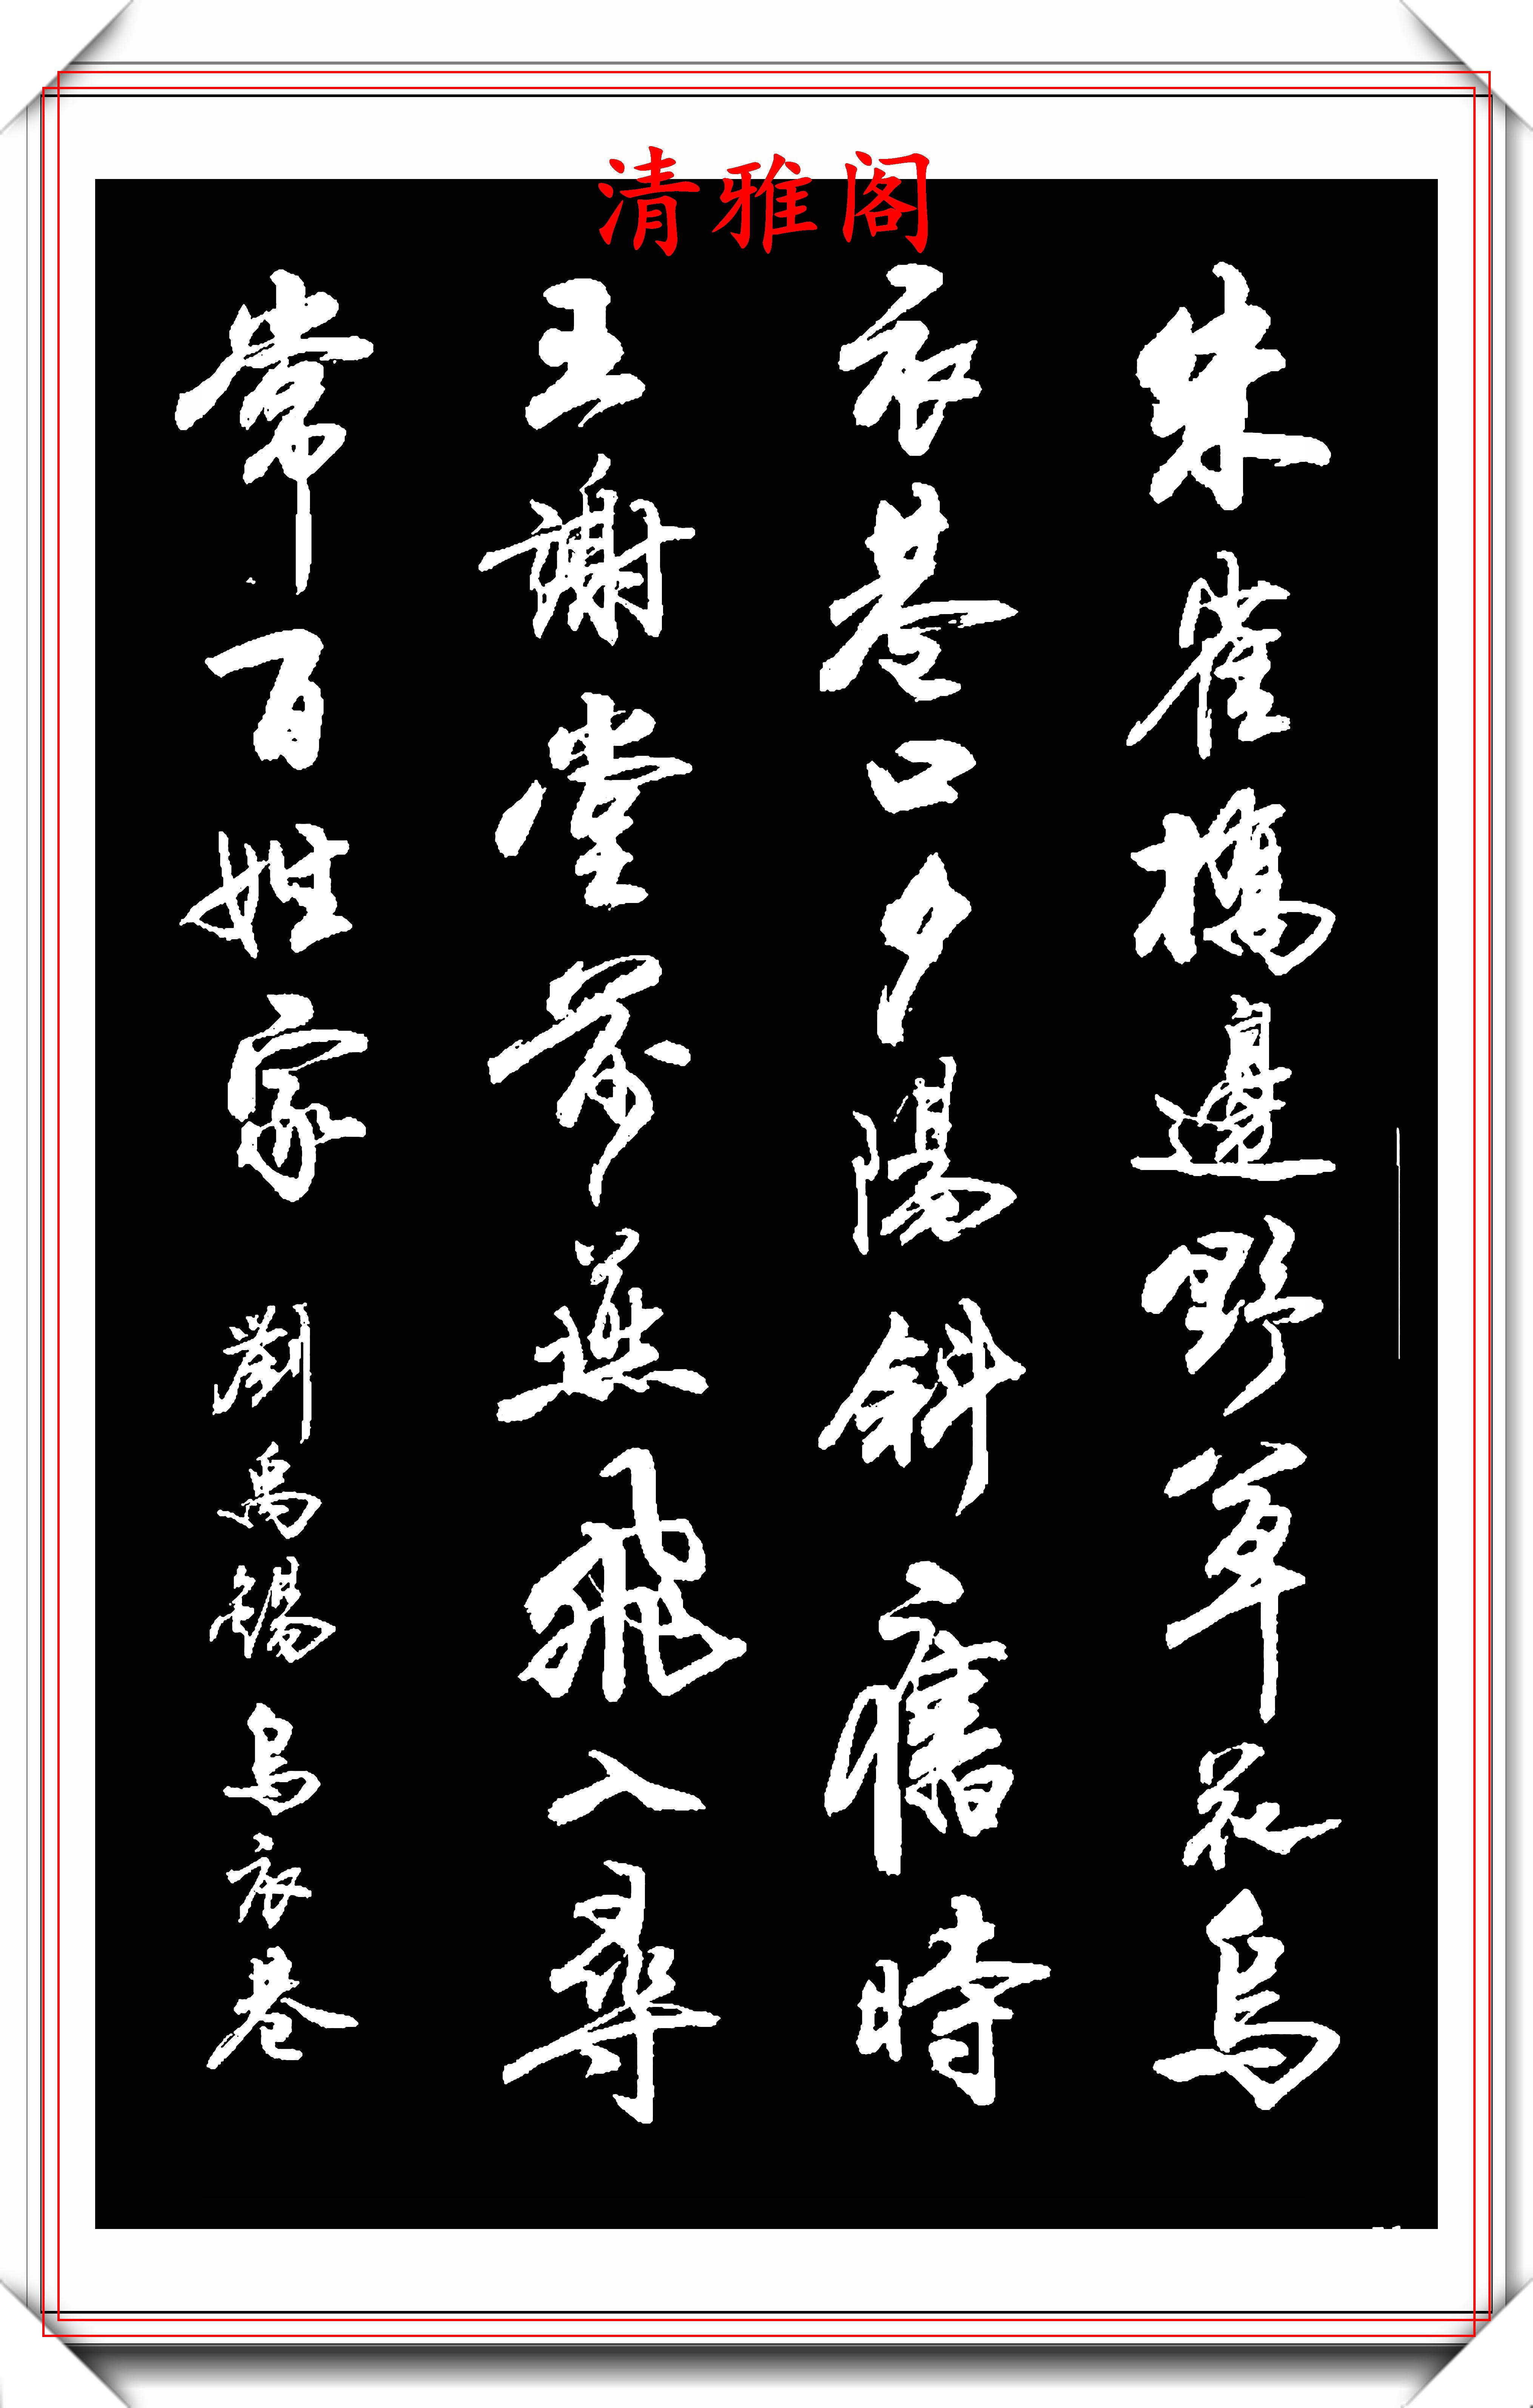 清雅阁
朱雀橋邊野草花烏
衣巷口夕陽斜舊時
王謝堂前燕飛入尋
常百姓家 劉禹錫 烏衣巷